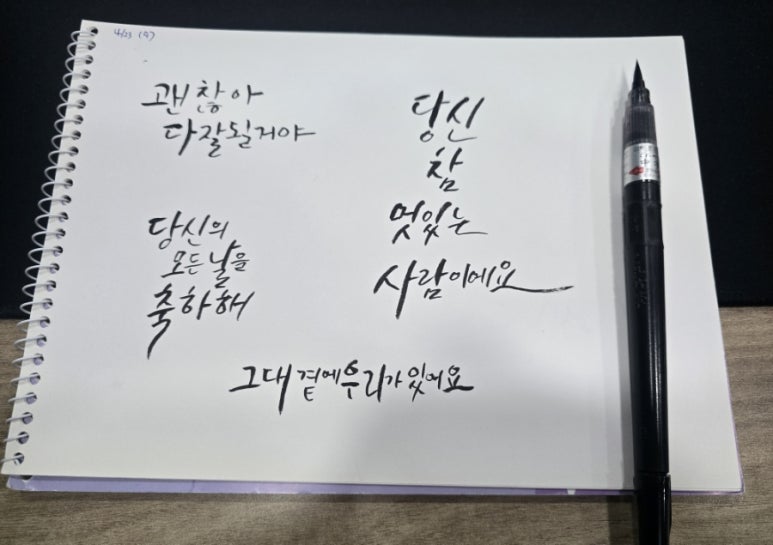 4/23 (수)
괜찮아
다 잘 될 거야
당신의
모든 날을
축하해
당신
참
멋있는
사람이에요
그대 곁에 우리가 있어요